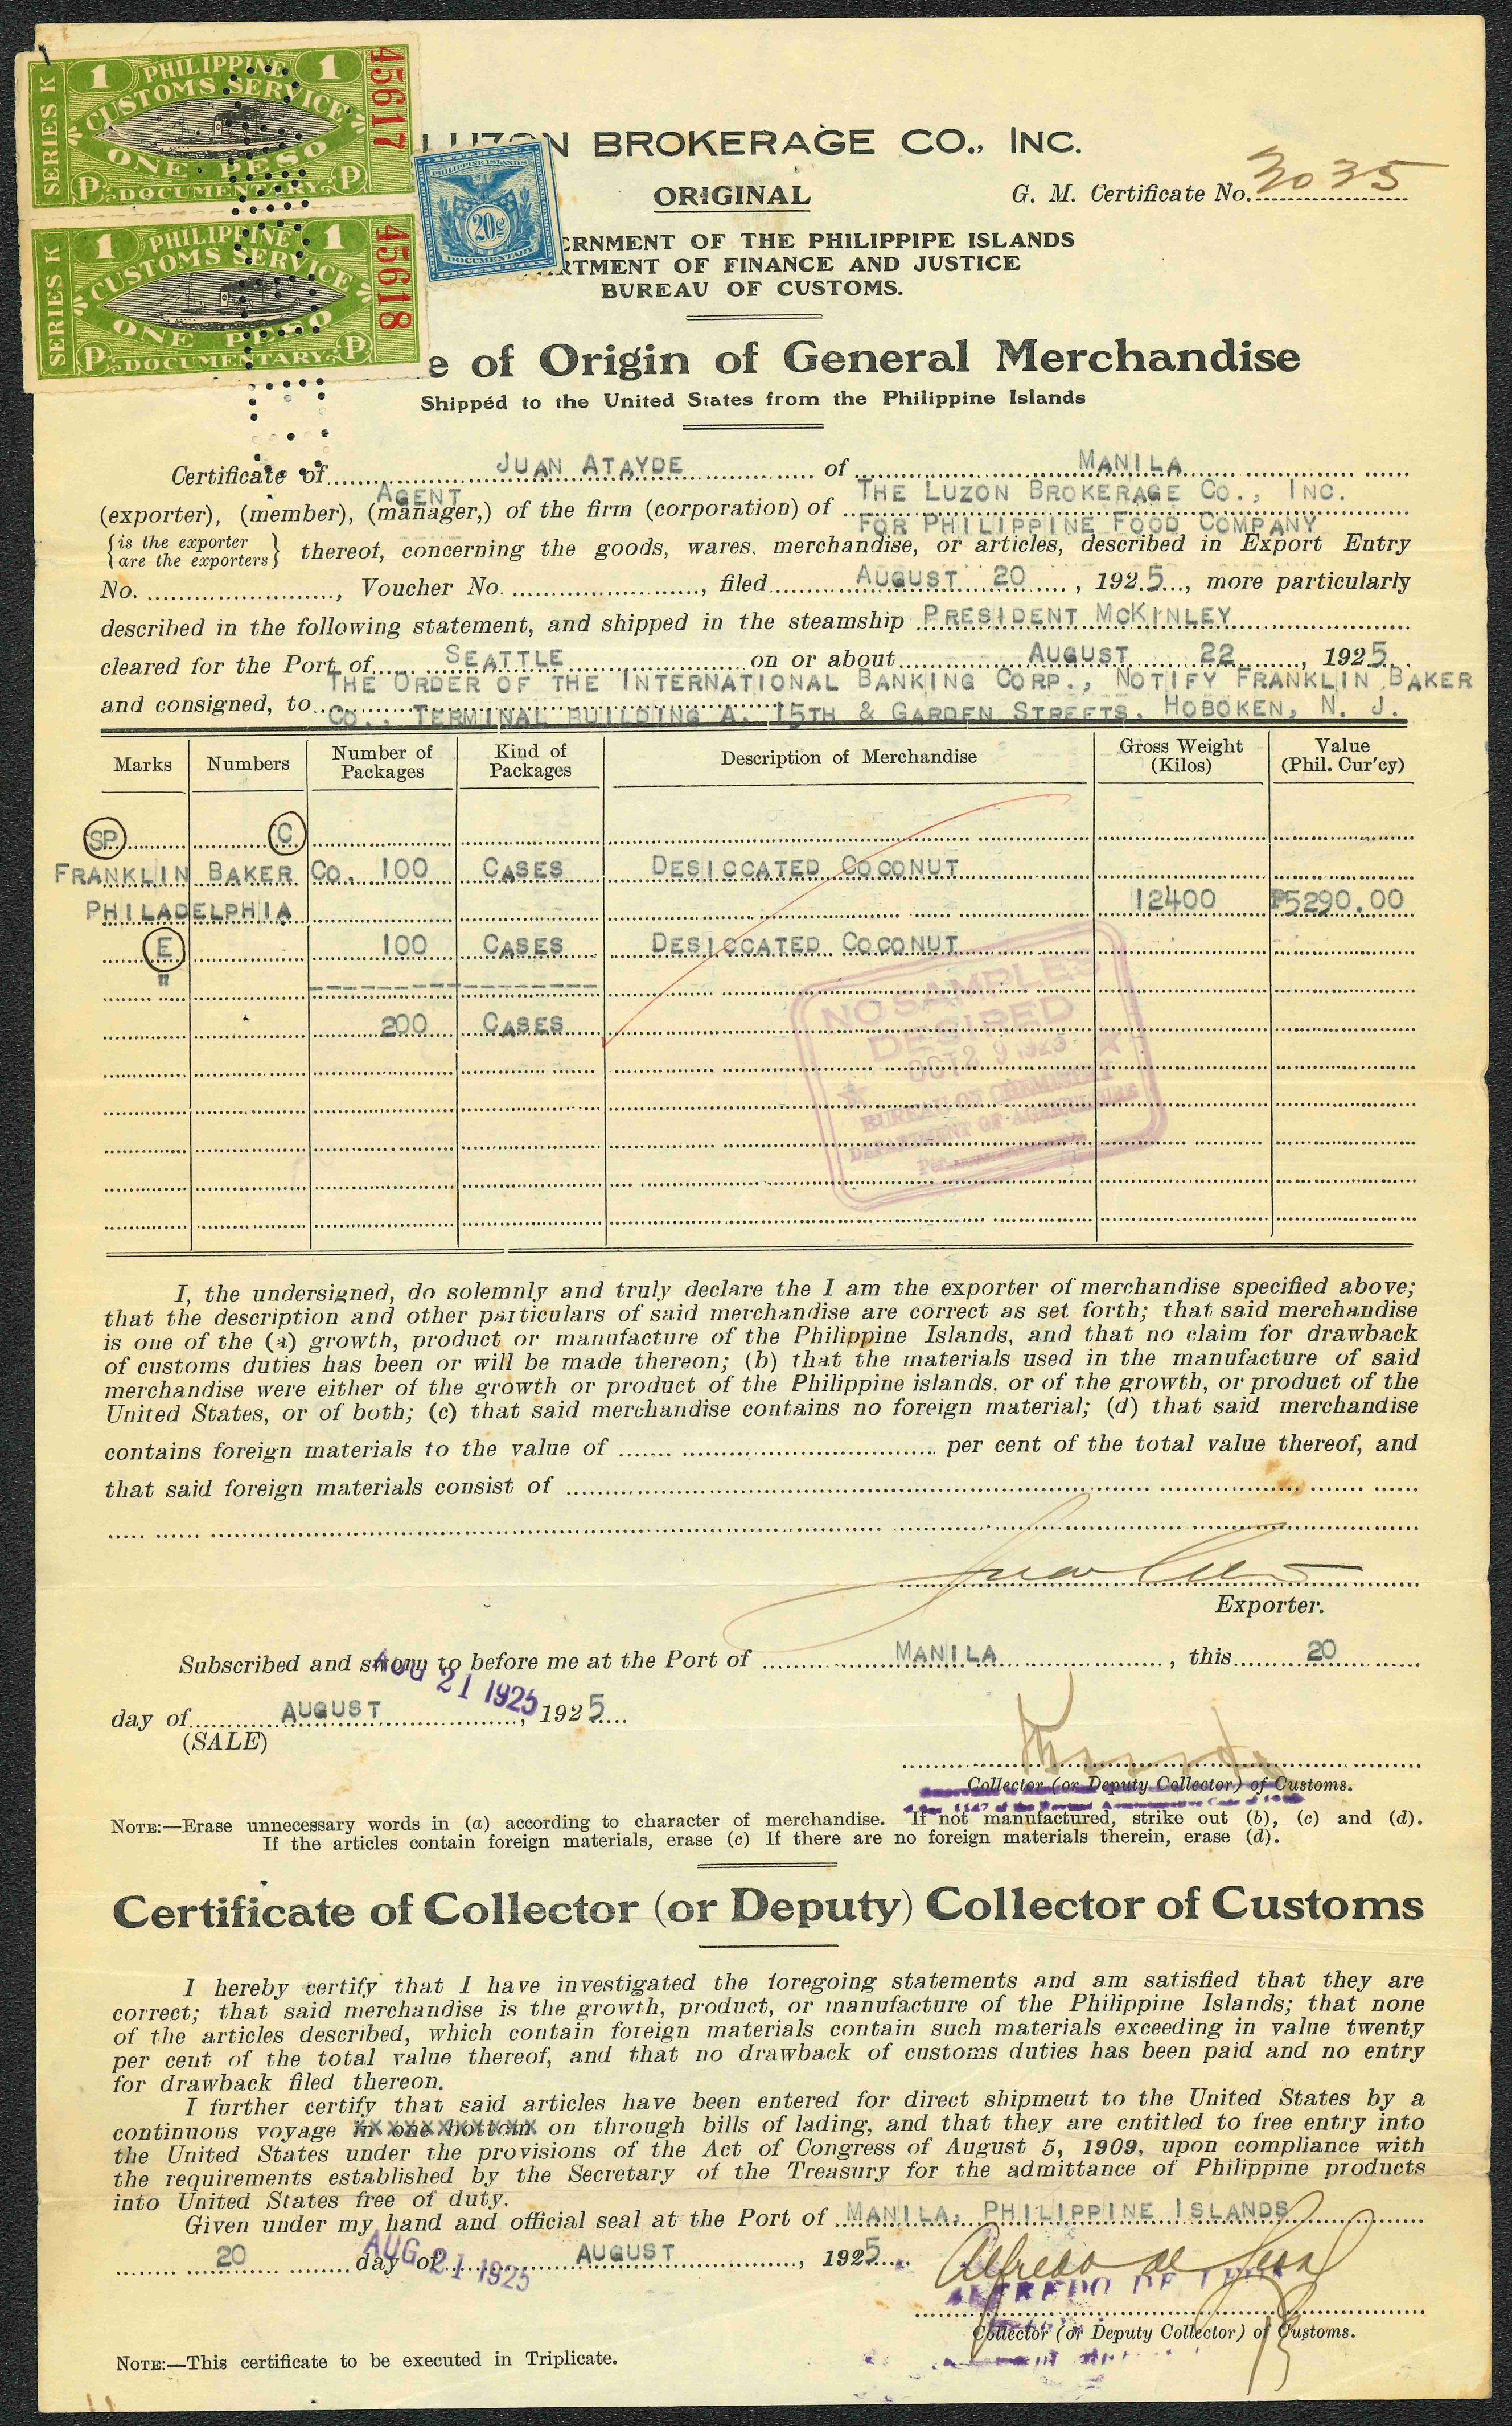 SERIES K 1 PHILIPPINE 1 45617
CUSTOMS SERVICE
ONE PESO
P DOCUMENTARY P
SERIES K 1 PHILIPPINE 1 45618
CUSTOMS SERVICE
ONE PESO
P DOCUMENTARY P
INTERNAL
PHILIPPINE ISLANDS
20¢
DOCUMENTARY
LUZON BROKERAGE CO., INC.
ORIGINAL
G. M. Certificate No. 3035
ERNMENT OF THE PHILIPPIPE ISLANDS
RTMENT OF FINANCE AND JUSTICE
BUREAU OF CUSTOMS.
e of Origin of General Merchandise
Shippéd to the United States from the Philippine Islands
Certificate of JUAN ATAYDE of MANILA
AGENT THE LUZON BROKERAGE CO., INC.
(exporter), (member), (manager,) of the firm (corporation) of
FOR PHILIPPINE FOOD COMPANY
{is the exporter / are the exporters} thereof, concerning the goods, wares. merchandise, or articles, described in Export Entry
No. , Voucher No. , filed AUGUST 20 , 1925, more particularly
described in the following statement, and shipped in the steamship PRESIDENT MCKINLEY
cleared for the Port of SEATTLE on or about AUGUST 22, 1925
THE ORDER OF THE INTERNATIONAL BANKING CORP., NOTIFY FRANKLIN BAKER
and consigned, to CO., TERMINAL BUILDING A, 15TH & GARDEN STREETS, HOBOKEN, N. J.
Marks Numbers Number of Packages Kind of Packages Description of Merchandise Gross Weight (Kilos) Value (Phil. Cur'cy)
SP C
FRANKLIN BAKER CO. 100 CASES DESICCATED COCONUT
PHILADELPHIA 12400 ₱5290.00
E 100 CASES DESICCATED COCONUT
"
200 CASES
NO SAMPLES
DESIRED
OCT 29 1925
BUREAU OF CHEMISTRY
DEPARTMENT OF AGRICULTURE
I, the undersigned, do solemnly and truly declare the I am the exporter of merchandise specified above;
that the description and other particulars of said merchandise are correct as set forth; that said merchandise
is one of the (a) growth, product or manufacture of the Philippine Islands, and that no claim for drawback
of customs duties has been or will be made thereon; (b) that the materials used in the manufacture of said
merchandise were either of the growth or product of the Philippine islands. or of the growth, or product of the
United States, or of both; (c) that said merchandise contains no foreign material; (d) that said merchandise
contains foreign materials to the value of per cent of the total value thereof, and
that said foreign materials consist of
Exporter.
Subscribed and sworn to before me at the Port of MANILA, this 20
AUG 21 1925
day of AUGUST, 1925
(SALE)
Collector (or Deputy Collector) of Customs.
NOTE:—Erase unnecessary words in (a) according to character of merchandise. If not manufactured, strike out (b), (c) and (d).
If the articles contain foreign materials, erase (c) If there are no foreign materials therein, erase (d).
Certificate of Collector (or Deputy) Collector of Customs
I hereby certify that I have investigated the foregoing statements and am satisfied that they are
correct; that said merchandise is the growth, product, or manufacture of the Philippine Islands; that none
of the articles described, which contain foreign materials contain such materials exceeding in value twenty
per cent of the total value thereof, and that no drawback of customs duties has been paid and no entry
for drawback filed thereon.
I further certify that said articles have been entered for direct shipment to the United States by a
continuous voyage in one bottom on through bills of lading, and that they are entitled to free entry into
the United States under the provisions of the Act of Congress of August 5, 1909, upon compliance with
the requirements established by the Secretary of the Treasury for the admittance of Philippine products
into United States free of duty.
Given under my hand and official seal at the Port of MANILA, PHILIPPINE ISLANDS
20 day of AUGUST, 1925
AUG 21 1925
Alfredo de Leon
ALFREDO DE LEON
Collector (or Deputy Collector) of Customs.
NOTE:—This certificate to be executed in Triplicate.